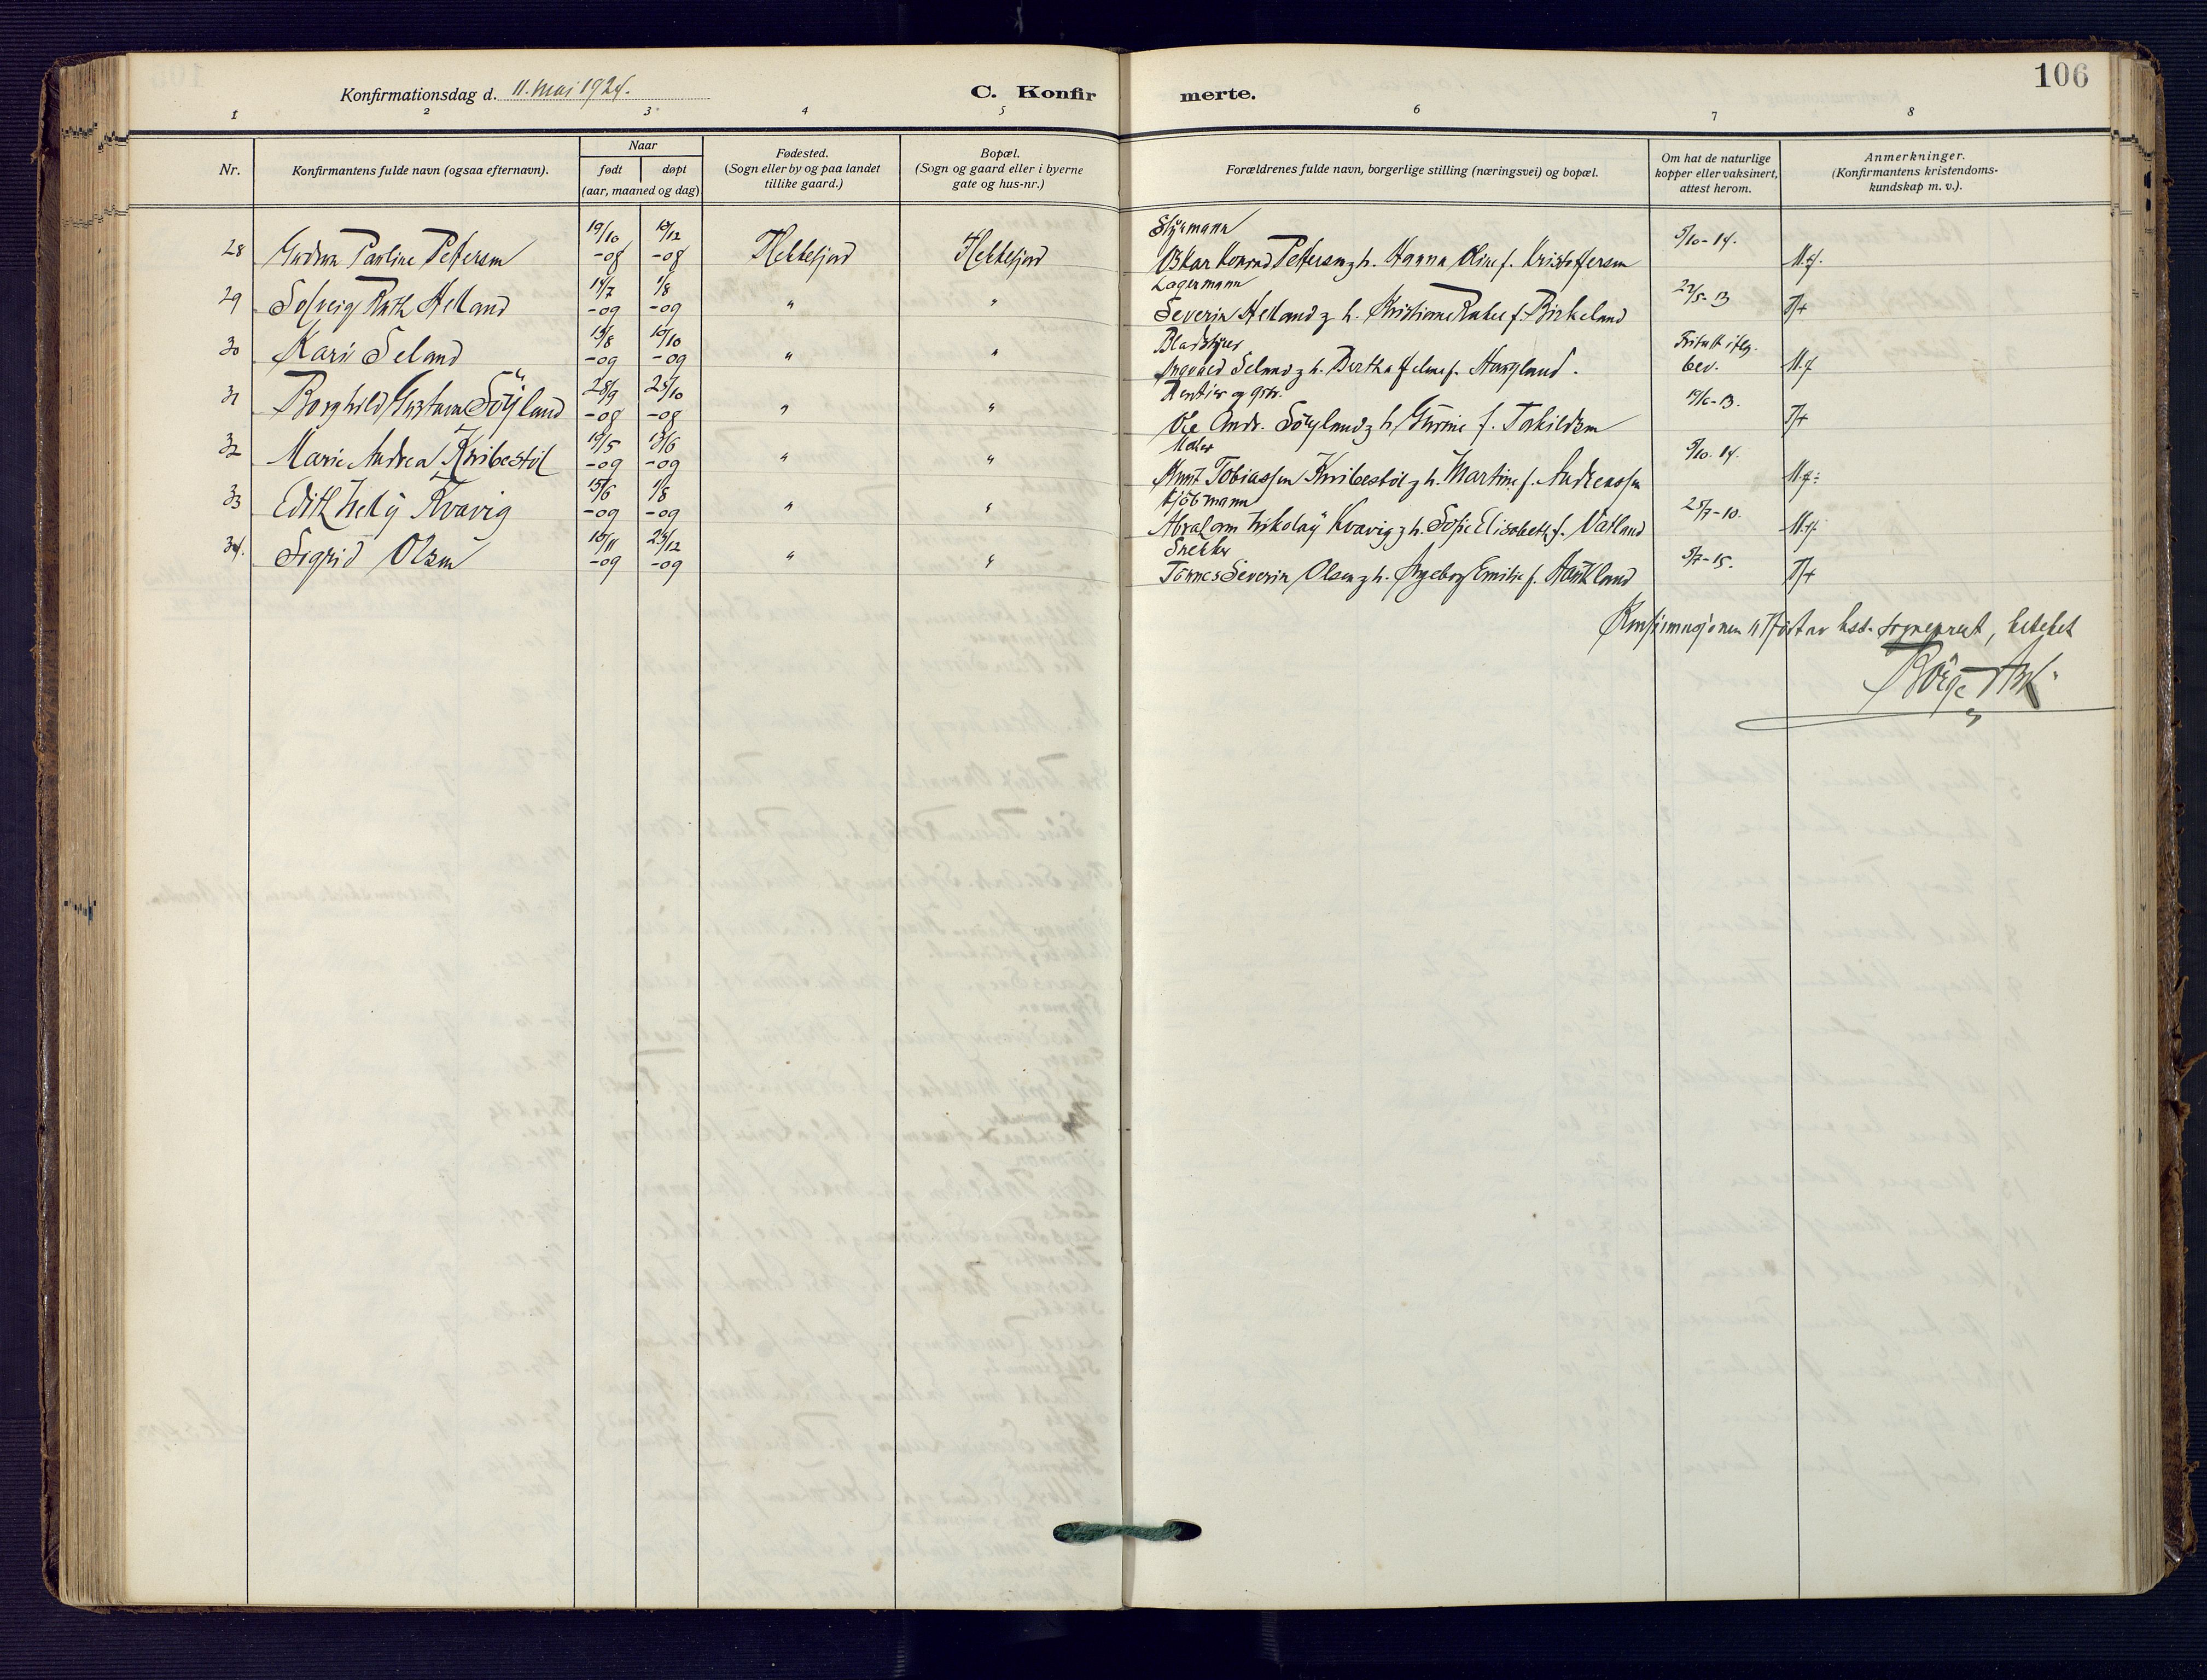 106
Konfirmationsdag d. 11. mai 1924.
C. Konfirmerte.
1 2 3 4 5 6 7 8
Nr.
Konfirmantens fulde navn (ogsaa efternavn).
Naar
født
døpt
(aar, maaned og dag)
Fødested.
(Sogn eller by og paa landet
tillike gaard.)
Bopæl.
(Sogn og gaard eller i byerne
gate og hus-nr.)
Forældrenes fulde navn, borgerlige stilling (næringsvei) og bopæl.
Om hat de naturlige
kopper eller vaksinert,
attest herom.
Anmerkninger.
(Konfirmantens kristendoms-
kundskap m. v.).
Styrmann
28 Gudrun Pauline Pettersen 19/10 -08 /12 -08 Flekkefjord Flekkefjord Oskar Konrad Pettersen g h. Hanna Oline f. Kristoffersen 5/10-14. M.g.
Lagermann
29 Solveig Ruth Helland 14/7 -09 1/8 -09 " " Severin Helland g h. Kristiane f. Birkeland 27/5-13 T+
Bladstyrer
30 Kari Seland 15/8 -09 10/10 -09 " " Ingvald Seland g h. Bertha f. Haugland. bev. M.g
Rentier og
31 Borghild Gustava Söyland 28/9 -08 25/10 -08 " " Ole Andr. Söyland g h. Gurine f. Torkildsen 19/6-13. T+
Maler
32 Marie Andrea Kvibestöl 19/5 -09 13/6 -09 " " Knut Tobiassen Kvibestöl g h. Martine f. Andreassen 5/10.14. M.g.
Kjöbmann
33 Edith Nelly Kvavig 15/6 -09 1/8 -09 " " Abraham Nikolay Kvavig g h. Sofie Elisabeth f. Vatland 25/7-10. M.g.
Snekker
34. Sigrid Olsen 10/11 -09 25/12 -09 " " Tönnes Severin Olsen g h. Ingeborg Emilie f. Haukland 5/7-15. T+
Konfirmasjonen av kst. sogneprest,
Börge